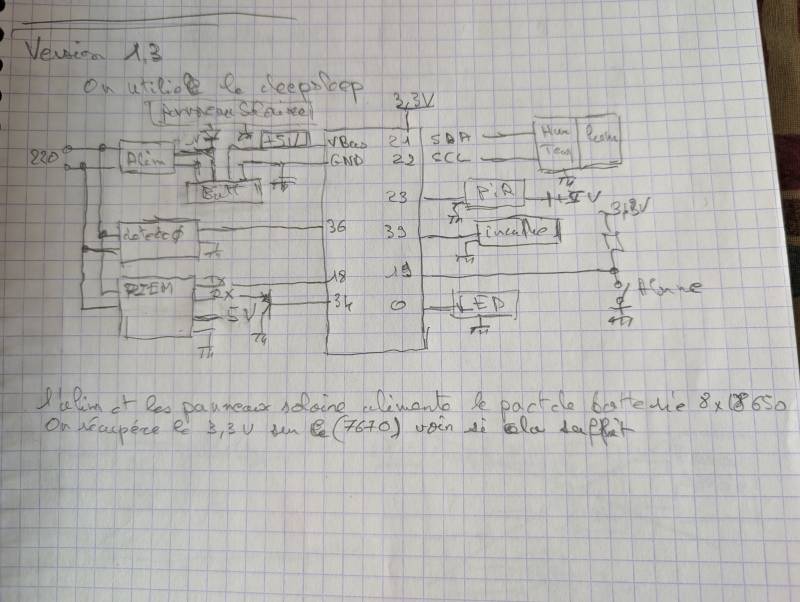 Version 1,3
On utilise le deepsleep
3,3V
220
Alim
Batt
+5V
VBus
GND
21 SDA
22 SCL
Hum
23
PiR
+5V
3,3V
36
39
18
19
RX
34
5V
0
LED
Alarme
L'alim et les panneaux solaire alimente le pack de batterie 8x18650
On récupère le 3,3V sur le (7670) voir si cela suffit